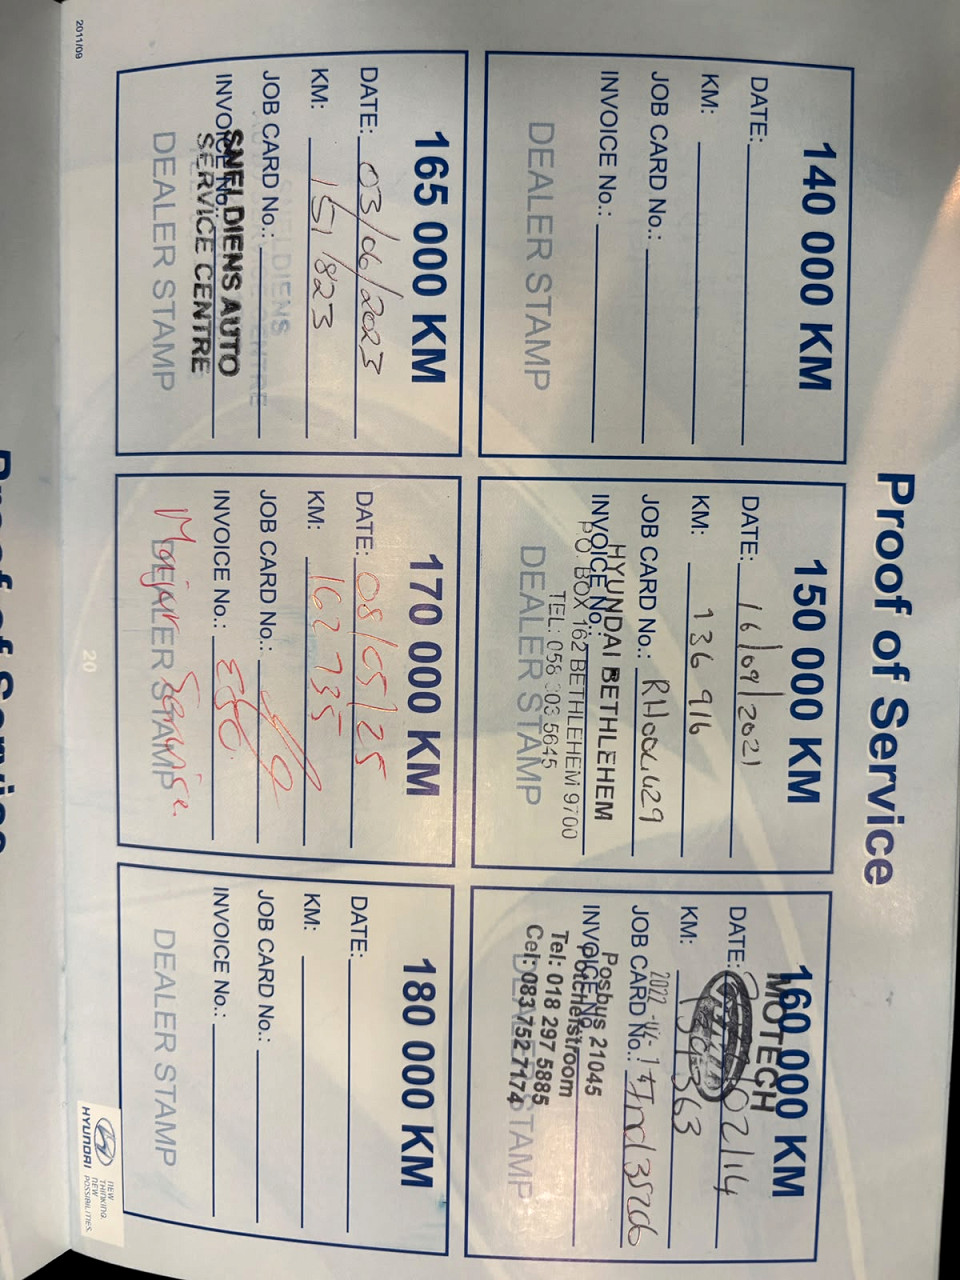 Proof of Service
140 000 KM
DATE:
KM:
JOB CARD No.:
INVOICE No.:
DEALER STAMP
150 000 KM
DATE: 16/09/2021
KM: 136 916
JOB CARD No.:
INVOICE No.:
HYUNDAI BETHLEHEM
PO BOX 162 BETHLEHEM 9700
TEL: 058 303 5645
DEALER STAMP
160 000 KM
MOTECH
DATE: 02/14
KM: 139 363
2022
JOB CARD No.:
INVOICE No.:
Posbus 21045
Potchefstroom
Tel: 018 297 5885
Cel: 083 752 7174
DEALER STAMP
165 000 KM
DATE: 03/06/2023
KM: 151 823
JOB CARD No.:
INVOICE No.:
SNELDIENS AUTO
SERVICE CENTRE
DEALER STAMP
170 000 KM
DATE: 08/05/25
KM: 162 735
JOB CARD No.:
INVOICE No.:
DEALER STAMP
Major Service.
180 000 KM
DATE:
KM:
JOB CARD No.:
INVOICE No.:
DEALER STAMP
2011/09
20
HYUNDAI
NEW
THINKING.
NEW
POSSIBILITIES.